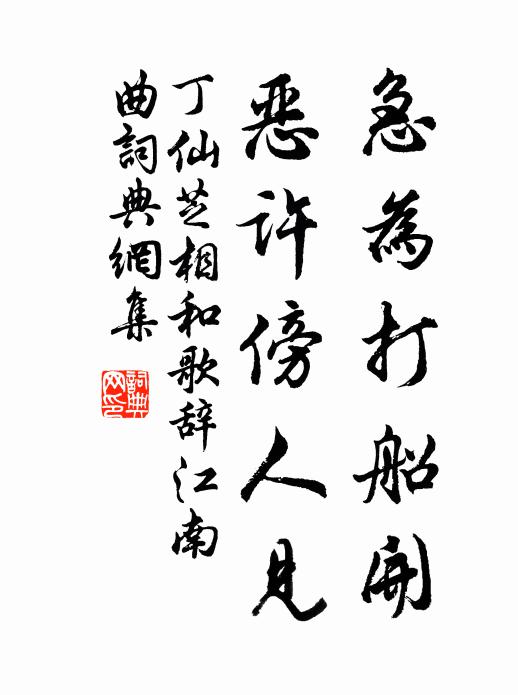 急為打船開
惡許傍人見
丁仙芝相和歌辞江南
曲詞典網集
詞典
网印